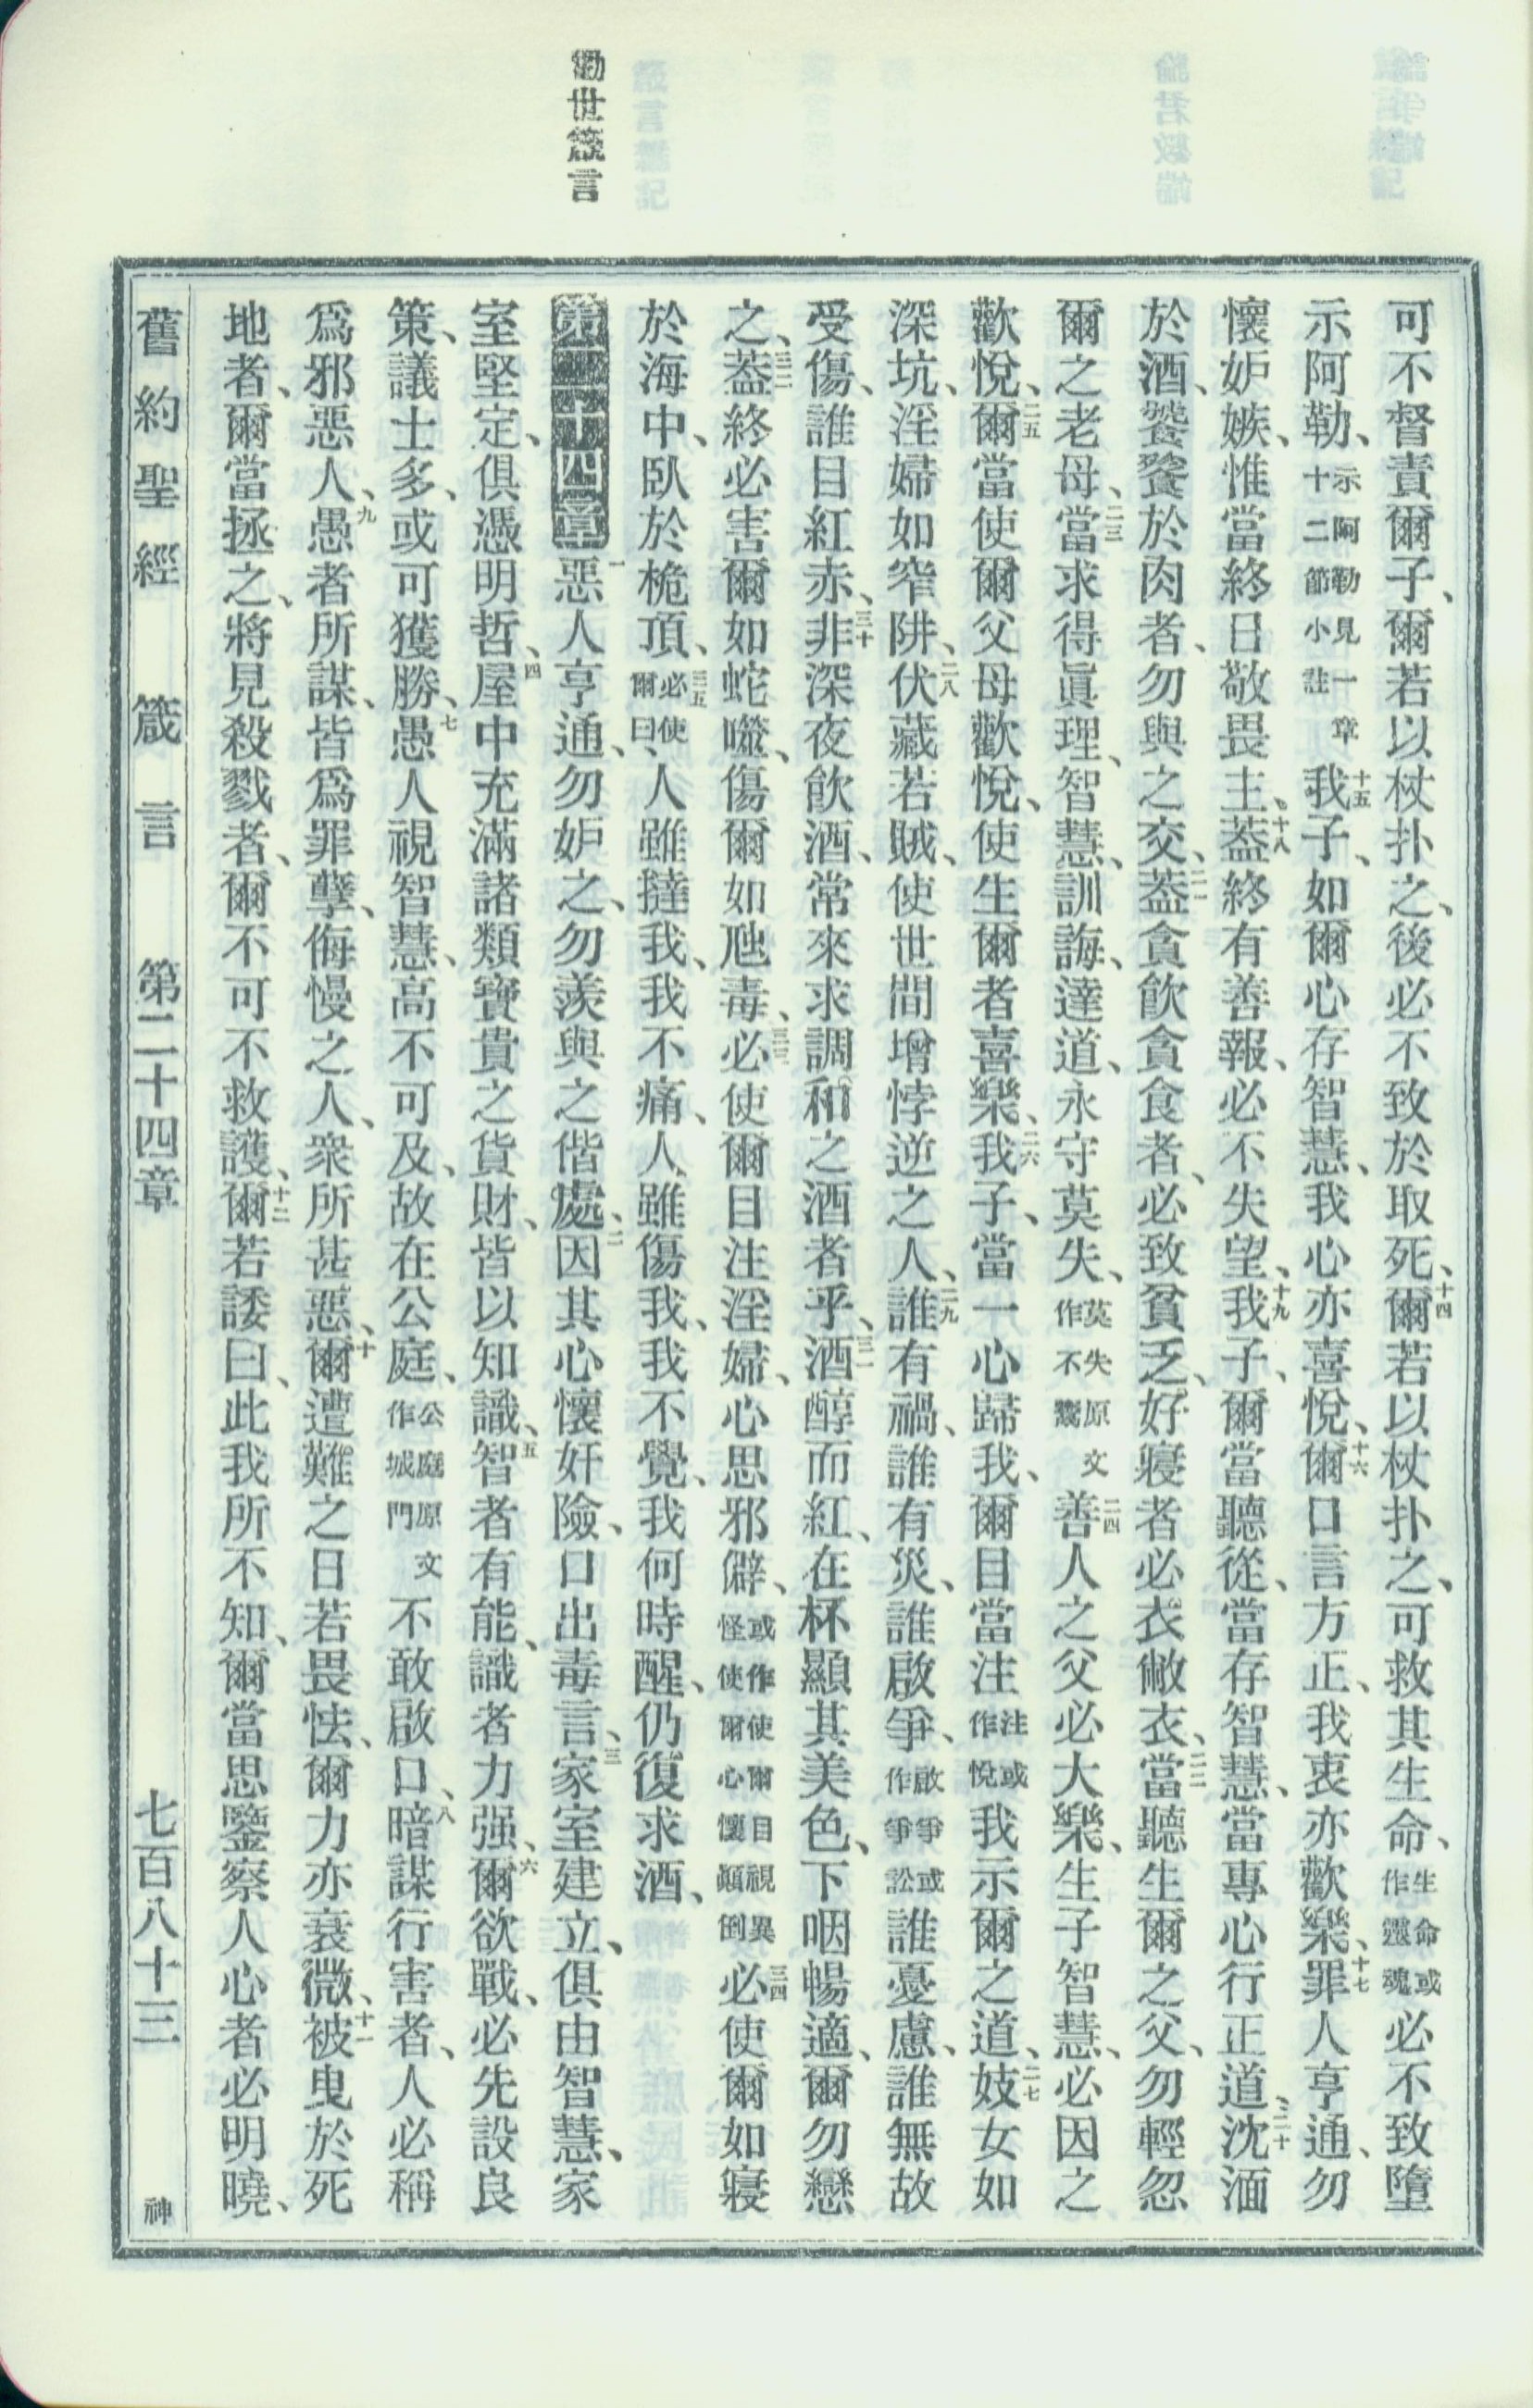 勸世箴言
可不督責爾子、爾若以杖扑之、後必不致於取死、十四爾若以杖扑之、可救其生命、生命或作靈魂必不致墮
示阿勒、示阿勒見一章十二節小註十五我子、如爾心存智慧、我心亦喜悅、十六爾口言方正、我衷亦歡樂、十七罪人亨通、勿
懷妒嫉、惟當終日敬畏主、十八蓋終有善報、必不失望、十九我子、爾當聽從、當存智慧、當專心行正道、二十沈湎
於酒、饕餮於肉者、勿與之交、二一蓋貪飲貪食者、必致貧乏、好寢者必衣敝衣、二二當聽生爾之父、勿輕忽
爾之老母、二三當求得眞理、智慧、訓誨、達道、永守莫失、莫失原文作不鬻二四善人之父必大樂、生子智慧、必因之
歡悅、二五爾當使爾父母歡悅、使生爾者喜樂、二六我子、當一心歸我、爾目當注注或作悅我示爾之道、二七妓女如
深坑、淫婦如窄阱、二八伏藏若賊、使世間增悖逆之人、二九誰有禍、誰有災、誰啟爭、啟爭或作爭訟誰憂慮、誰無故
受傷、誰目紅赤、三十非深夜飲酒、常來求調和之酒者乎、三一酒醇而紅、在杯顯其美色、下咽暢適、爾勿戀
之、三二蓋終必害爾如蛇噬、傷爾如虺毒、三三必使爾目注淫婦、心思邪僻、或作使爾目視異怪使爾心懷顚倒三四必使爾如寢
於海中、臥於桅頂、三五必使爾曰、人雖撻我、我不痛、人雖傷我、我不覺、我何時醒、仍復求酒、
第二十四章一惡人亨通、勿妒之、勿羨與之偕處、二因其心懷奸險、口出毒言、三家室建立、俱由智慧、家
室堅定、俱憑明哲、四屋中充滿諸類寶貴之貨財、皆以知識、五智者有能、識者力强、六爾欲戰、必先設良
策、議士多、或可獲勝、七愚人視智慧、高不可及、故在公庭、公庭原文作城門不敢啟口、八暗謀行害者、人必稱
爲邪惡人、九愚者所謀、皆爲罪孽、侮慢之人、衆所甚惡、十爾遭難之日若畏怯、爾力亦衰微、十一被曳於死
地者、爾當拯之、將見殺戮者、爾不可不救護、十二爾若諉曰、此我所不知、爾當思鑒察人心者必明曉、
舊約聖經　箴言　第二十四章　七百八十三　神